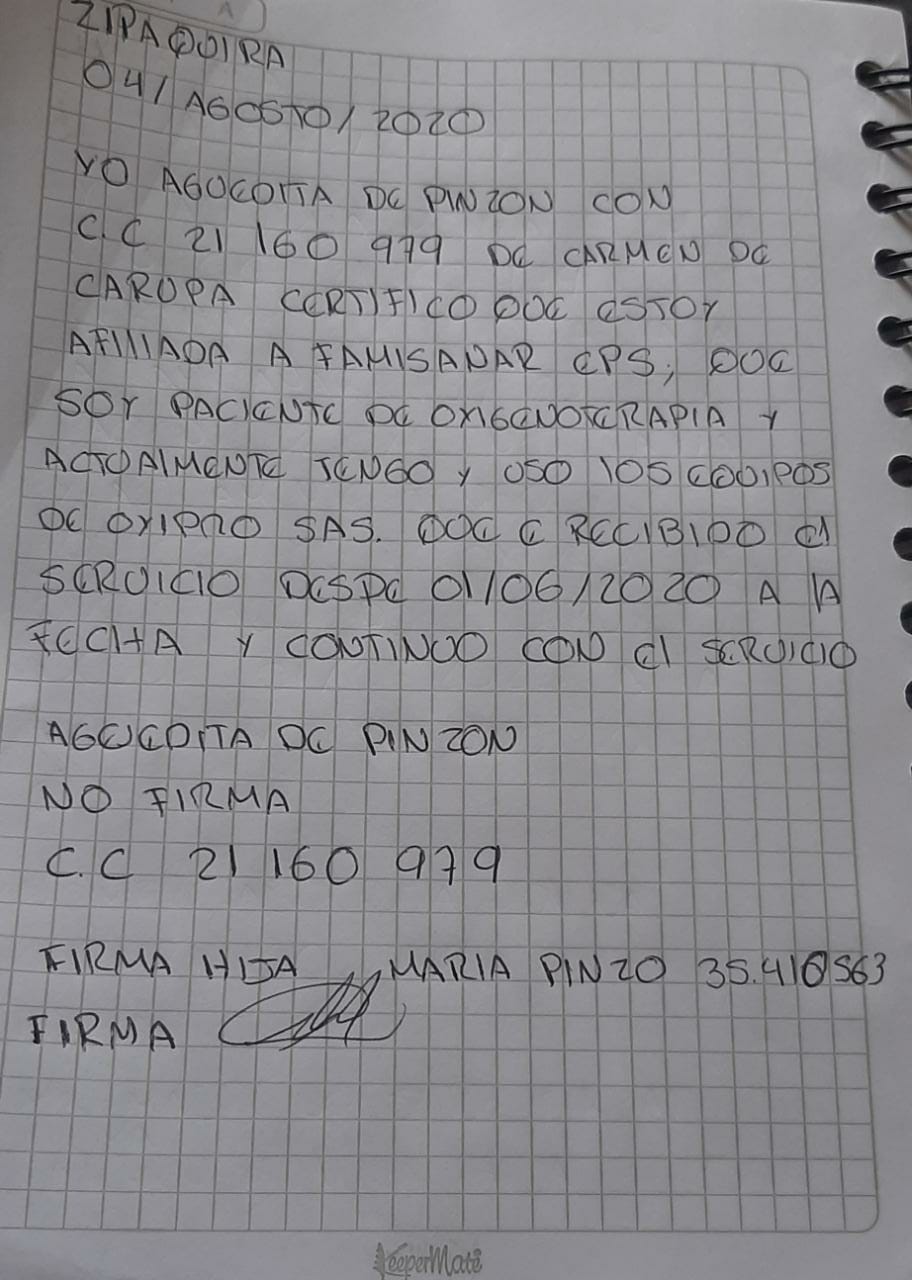 ZIPAQUIRA
04/AGOSTO/2020
YO AGUEDITA DE PINZON CON
C.C 21 160 979 DE CARMEN DE
CARUPA CERTIFICO QUE ESTOY
AFIlIADA A FAMISANAR EPS, QUE
SOY PACIENTE DE OXIGENOTERAPIA Y
ACTUAlMENTE TENGO Y USO lOS EQUIPOS
DE OXIPRO SAS. QUE E RECIBIDO El
SERVICIO DESDE 01/06/2020 A lA
FECHA Y CONTINUO CON El SERVICIO
AGUEDITA DE PINZON
NO FIRMA
C.C 21 160 979
FIRMA HIJA MARIA PINZO 35.410563
FIRMA
KeeperMate